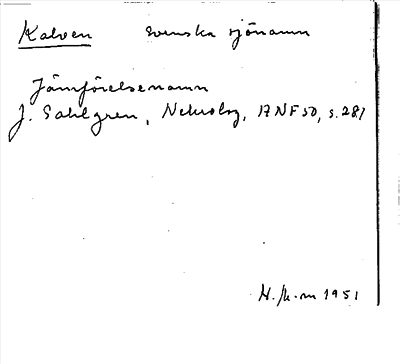 Kalven svenska sjönamn
Jämförelsenamn
J. Sahlgren, Nekrolog, ANF 50, s. 281
1951